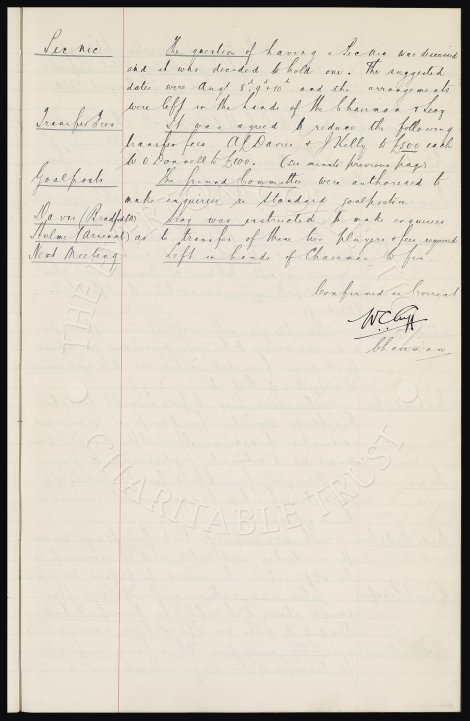 Pic nic The question of having a Pic nic was discussed
and it was decided to hold one. The suggested
dates were Augt 8, 9th & 10th and the arrangements
were left in the hands of the Chairman & Secy
Transfer Fees It was agreed to reduce the following
transfer fees A L Davies & J Kelly to £500 each
& O'Donnell to £100. (see minute previous page)
Goalposts The Ground Committee were authorised to
make enquiries re Standard goalposts
Davis (Bradford) Secy was instructed to make enquiries
Hulme (Arsenal) as to transfer of these two players & fees required
Next Meeting Left in hands of Chairman to fix
Confirmed as Correct
W.C. Cuff
Chairman
CHARITABLE TRUST